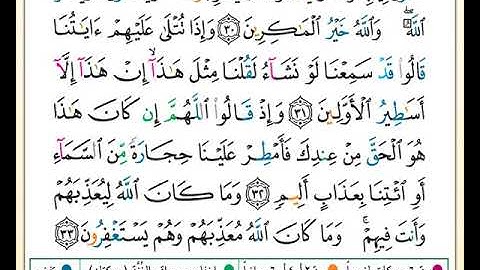 ٱللَّهُ ۖ وَٱللَّهُ خَيْرُ ٱلْمَـٰكِرِينَ ٣٠ وَإِذَا تُتْلَىٰ عَلَيْهِمْ ءَايَـٰتُنَا
قَالُوا۟ قَدْ سَمِعْنَا لَوْ نَشَآءُ لَقُلْنَا مِثْلَ هَـٰذَآ ۙ إِنْ هَـٰذَآ إِلَّآ
أَسَـٰطِيرُ ٱلْأَوَّلِينَ ٣١ وَإِذْ قَالُوا۟ ٱللَّهُمَّ إِن كَانَ هَـٰذَا
هُوَ ٱلْحَقَّ مِنْ عِندِكَ فَأَمْطِرْ عَلَيْنَا حِجَارَةً مِّنَ ٱلسَّمَآءِ
أَوِ ٱئْتِنَا بِعَذَابٍ أَلِيمٍ ٣٢ وَمَا كَانَ ٱللَّهُ لِيُعَذِّبَهُمْ
وَأَنتَ فِيهِمْ ۚ وَمَا كَانَ ٱللَّهُ مُعَذِّبَهُمْ وَهُمْ يَسْتَغْفِرُونَ ٣٣